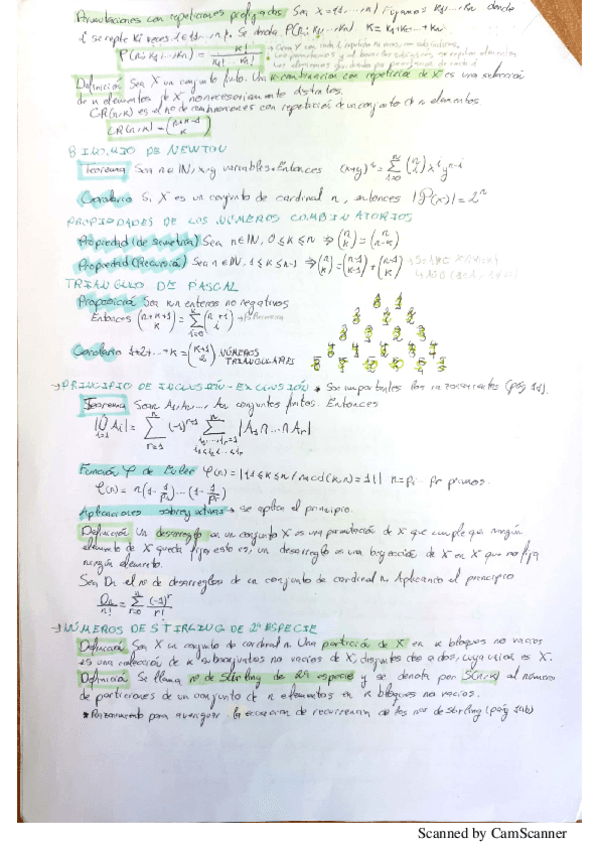 Permutaciones con repeticiones prefijadas Sea X={1,...,n} Fijamos K1,...,Kn donde
i se repite Ki veces, i∈{1...n}. Se denota P(n; K1,...,Kn) K=K1+K2+...+Kn
P(n; K1,...,Kn) = K! / (K1! ... Kn!)
Definición Sea X un conjunto finito. Una k-combinación con repetición de X es una selección
de k elementos de X, no necesariamente distintos.
CR(n,k) es el nº de combinaciones con repetición de un conjunto de n elementos
CR(n,k) = (n+k-1 / k)
BINOMIO DE NEWTON
Teorema Sea n∈IN, x,y variables. Entonces (x+y)^n = Σ_{i=0}^{n} (n / i) x^i y^{n-i}
Corolario Si X es un conjunto de cardinal n, entonces |P(X)| = 2^n
PROPIEDADES DE LOS NÚMEROS COMBINATORIOS
Propiedad (de simetría) Sea n∈IN, 0≤k≤n ⇒ (n / k) = (n / n-k)
Propiedad (Recursiva) Sea n∈IN, 1≤k≤n-1 ⇒ (n / k) = (n-1 / k-1) + (n-1 / k)
TRIÁNGULO DE PASCAL
Proposición Sea k,n enteros no negativos
Entonces (n+k+1 / k) = Σ_{i=0}^{k} (n+i / i)
Corolario 1+2+...+k = (k+1 / 2) NÚMEROS TRIANGULARES
→PRINCIPIO DE INCLUSIÓN-EXCLUSIÓN * Son importantes (pág
Teorema Sean A1, A2, ..., An conjuntos finitos. Entonces
|∪_{i=1}^{n} Ai| = Σ_{r=1}^{n} (-1)^{r+1} Σ |A1∩...∩Ar|
Función φ de Euler φ(n) = |{1≤k≤n / mcd(k,n)=1}| n=p1...pr primos.
φ(n) = n(1-1/p1)...(1-1/pr)
Aplicaciones sobreyectivas → se aplica el principio.
Definición Un desarreglo de un conjunto X es una permutación de X que cumple que ningún
elemento de X queda fijo, esto es, un desarreglo es una biyección de X en X que no fija
ningún elemento.
Sea Dn el nº de desarreglos de un conjunto de cardinal n. Aplicando el principio
Dn/n! = Σ_{r=0}^{n} (-1)^r / r!
→NÚMEROS DE STIRLING DE 2ª ESPECIE
Definición Sea X un conjunto de cardinal n. Una partición de X en k bloques no vacíos
es una colección de k subconjuntos no vacíos de X, disjuntos dos a dos, cuya unión es X.
Definición Se llama nº de Stirling de 2ª especie y se denota por S(n,k) al número
de particiones de un conjunto de n elementos en k bloques no vacíos.
* Razonamiento para averiguar la ecuación de recurrencia de los nos de Stirling (pág
Scanned by CamScanner